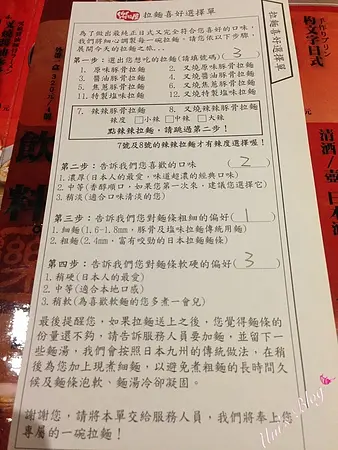 拉麵喜好選擇單
為了做出最純正日式又完全符合您喜好的口味,
我們將細心調製每一碗拉麵,請您依以下步驟,
展開今天的拉麵之旅...
第一步:選出您想吃的拉麵(請填號碼)( 3 )
1. 原味豚骨拉麵 2. 叉燒原味豚骨拉麵
3. 醬油豚骨拉麵 4. 叉燒醬油豚骨拉麵
5. 焦蔥豚骨拉麵 6. 叉燒焦蔥豚骨拉麵
11. 特製塩味拉麵 12. 叉燒特製塩味拉麵
7. 辣辣豚骨拉麵 8. 叉燒辣辣豚骨拉麵
辣度 □小辣 □中辣 □大辣
點辣辣拉麵,請跳過第二步!
7號及8號的辣辣拉麵才有辣度選擇喔!
第二步:告訴我們您喜歡的口味 ( 2 )
1. 濃厚(日本人的最愛,味道超濃的經典口味)
2. 中等(香醇順口,如果您第一次來,建議您選擇它)
3. 稍淡(適合口味清淡的您)
第三步:告訴我們您對麵條粗細的偏好( 1 )
1. 細麵(1.6-1.8mm,豚骨及塩味拉麵傳統用麵)
2. 粗麵(2.4mm,富有咬勁的日本拉麵麵條)
第四步:告訴我們您對麵條軟硬的偏好( 3 )
1. 稍硬(日本人的最愛)
2. 中等(適合本地口感)
3. 稍軟(為喜歡軟麵的您多煮一會兒)
最後提醒您,如果拉麵送上之後,您覺得麵條的
份量還不夠,請告訴服務人員要加麵,並留下一
些麵湯,我們會按照日本九州的傳統做法,在稍
後為您加上現煮細麵,以避免煮粗麵的長時間久
候及麵條泡軟、麵湯冷卻凝固。
謝謝您,請將本單交給服務人員,我們將奉上您
專屬的一碗拉麵!
拉麵喜好選擇單
飲料
清酒/壺